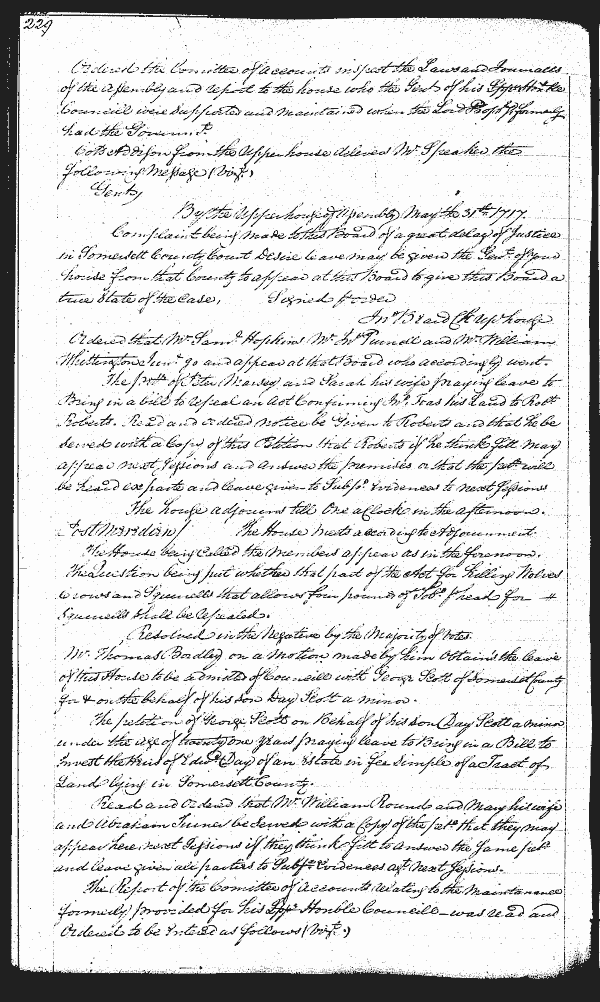 229
Ordered the Comittee of Accounts inspect the Laws and Journalls
of the Assembly and report to the house who the Gent of his Lspps Honble
Councill were Supported and maintained when the Lord Propry formerly
had the Governmt.
Collo Addison from the Upper house delivers Mr. Speaker the
following Message (Vizt.)
Gentn,
By the Upper house of Assembly May the 31st. 1717.
Complaint being made to this Board of a great delay of Justice
in Somersett County Court Desire leave may be given the Gent. of your
house from that County to appear at this Board to give this Board a
true State of the Case, Signed p order
Jno. Beard Clk Up house
Ordered that Mr Saml. Hopkins Mr. Jno. Purnell and Mr William
Whittington Junr. go and appear at that Board who accordingly went.
The petn. of Peter Mansey and Sarah his wife praying leave to
Bring in a bill to repeal an Act Confirming Jno. his Land to Robt
Roberts. Read and ordered notice be Given to Roberts and that he be
served with a Copy of this Petition that Roberts if he think fitt may
appear next Sessions and answer the premises or that the petr. will
be heard exparte and leave given to Subpa. Evidences to next Sessions
The house adjourns till One aClock in the afternoon.
Post Meridiem / The House meets according to Adjournment.
The House being Called the Members appear as in the forenoon.
The Question being put whether that part of the Act for Killing Wolves
Crows and Squirells that allows four pounds of Tobo. p head for
Squirells shall be repealed.
Resolved in the Negative by the Majority of Votes.
Mr. Thomas Bordley on a Motion made by him Obtains the leave
of this House to be admitted of Councill with George Scott of Somersett County
for & on the behalf of his son Day Scott a minor.
The petition of George Scott on Behalf of his son Day Scott a minor
under the Age of twenty one Years praying leave to Bring in a Bill to
Invest the Heirs of Edwd. Day of an Estate in fee Simple of a Tract of
Land lying in Somersett County.
Read and Ordered that Mr. William Round and Mary his wife
and Abraham be served with a Copy of the petn. that they may
appear here next Sessions if they think fitt to answer the Same petn.
and leave given all parties to Subpa. Evidences agt. next Sessions.
The Report of the Comittee of Accounts relating to the Maintenance
formerly provided for his Lspps. Honble Councill was read and
Ordered to be entered as follows (Vizt.)